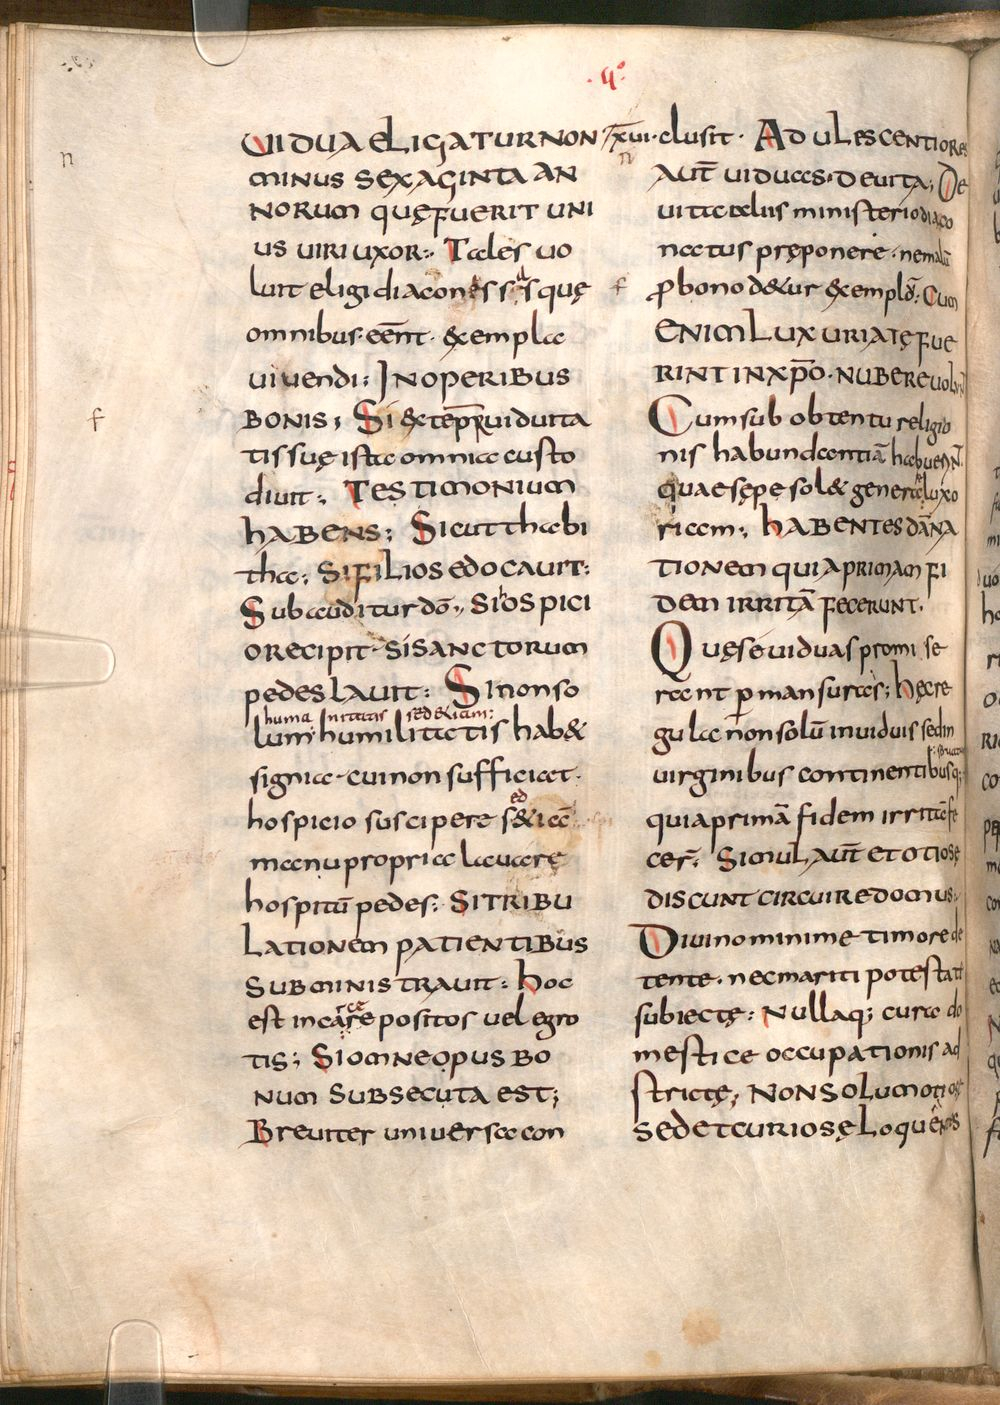 ·4°
n
UIDUA ELIGATUR NON
MINUS SEXAGINTA AN
NORUM QUĘ FUERIT UNI
US UIRI UXOR:· Tales uo
luit eligi diacones quę
omnibus· eēnt· & exempla
uiuendi: IN OPERIBUS
f
BONIS; Si & tēpr̄ uiduita
tis suę ista omnia custo
diuit; TESTIMONIUM
HABENS; Sicut thabi
tha; SI FILIOS EDOCAUIT:
Subauditur dō; SI hOSPICI
O RECIPIT· SI SANCTORUM
PEDES LAUIT: Si non so
huma nitatis sed etiam:
lum humilitatis hab&
signa· cui non sufficiat·
ed
hospicio suscipere s& iā
manu propria lauare
hospitū pedes: SI TRIBU
LATIONEM PATIENTIBUS
SUBMINISTRAUIT: hoc
rce
est in care positos uel egro
tis; SI OMNE OPUS BO
NUM SUBSECUTA EST;
Breuiter uniuersa con
xvi· clusit· ADULESCENTIORES
n
AUT̄ UIDUAS· DEUITA; De
uita alis ministerio diaco
natus pręponere· ne malū
f
p bono d&ur & exemplō: CUM
ENIM LUXURIATĘ FUE
RINT IN XP̄O· NUBERE UOLUNT̄
Cum sub obtentu religio
nis habundantiā habuerint̄
quae sepe sol& generare luxo
riam; HABENTES DĀNA
TIONEM QUIA PRIMAM FI
DEM IRRITĀ FECERUNT·
Quę se uiduas promi se
rant p mansuras; hęc re
gula non solū in uiduis sed in
uirginibus continentibusq;
qui a primā fidem irritā fe
cer̄; SIMUL AUT̄ ET OTIOSĘ
DISCUNT CIRCUIRE DOMUS·
Diuino minime timore de
tente· nec mariti potestati
subiectę: Nullaq; cura do
mestice occupationis ad
strictę; NON SOLUM OTIOSĘ
SED ET CURIOSĘ Loquentes